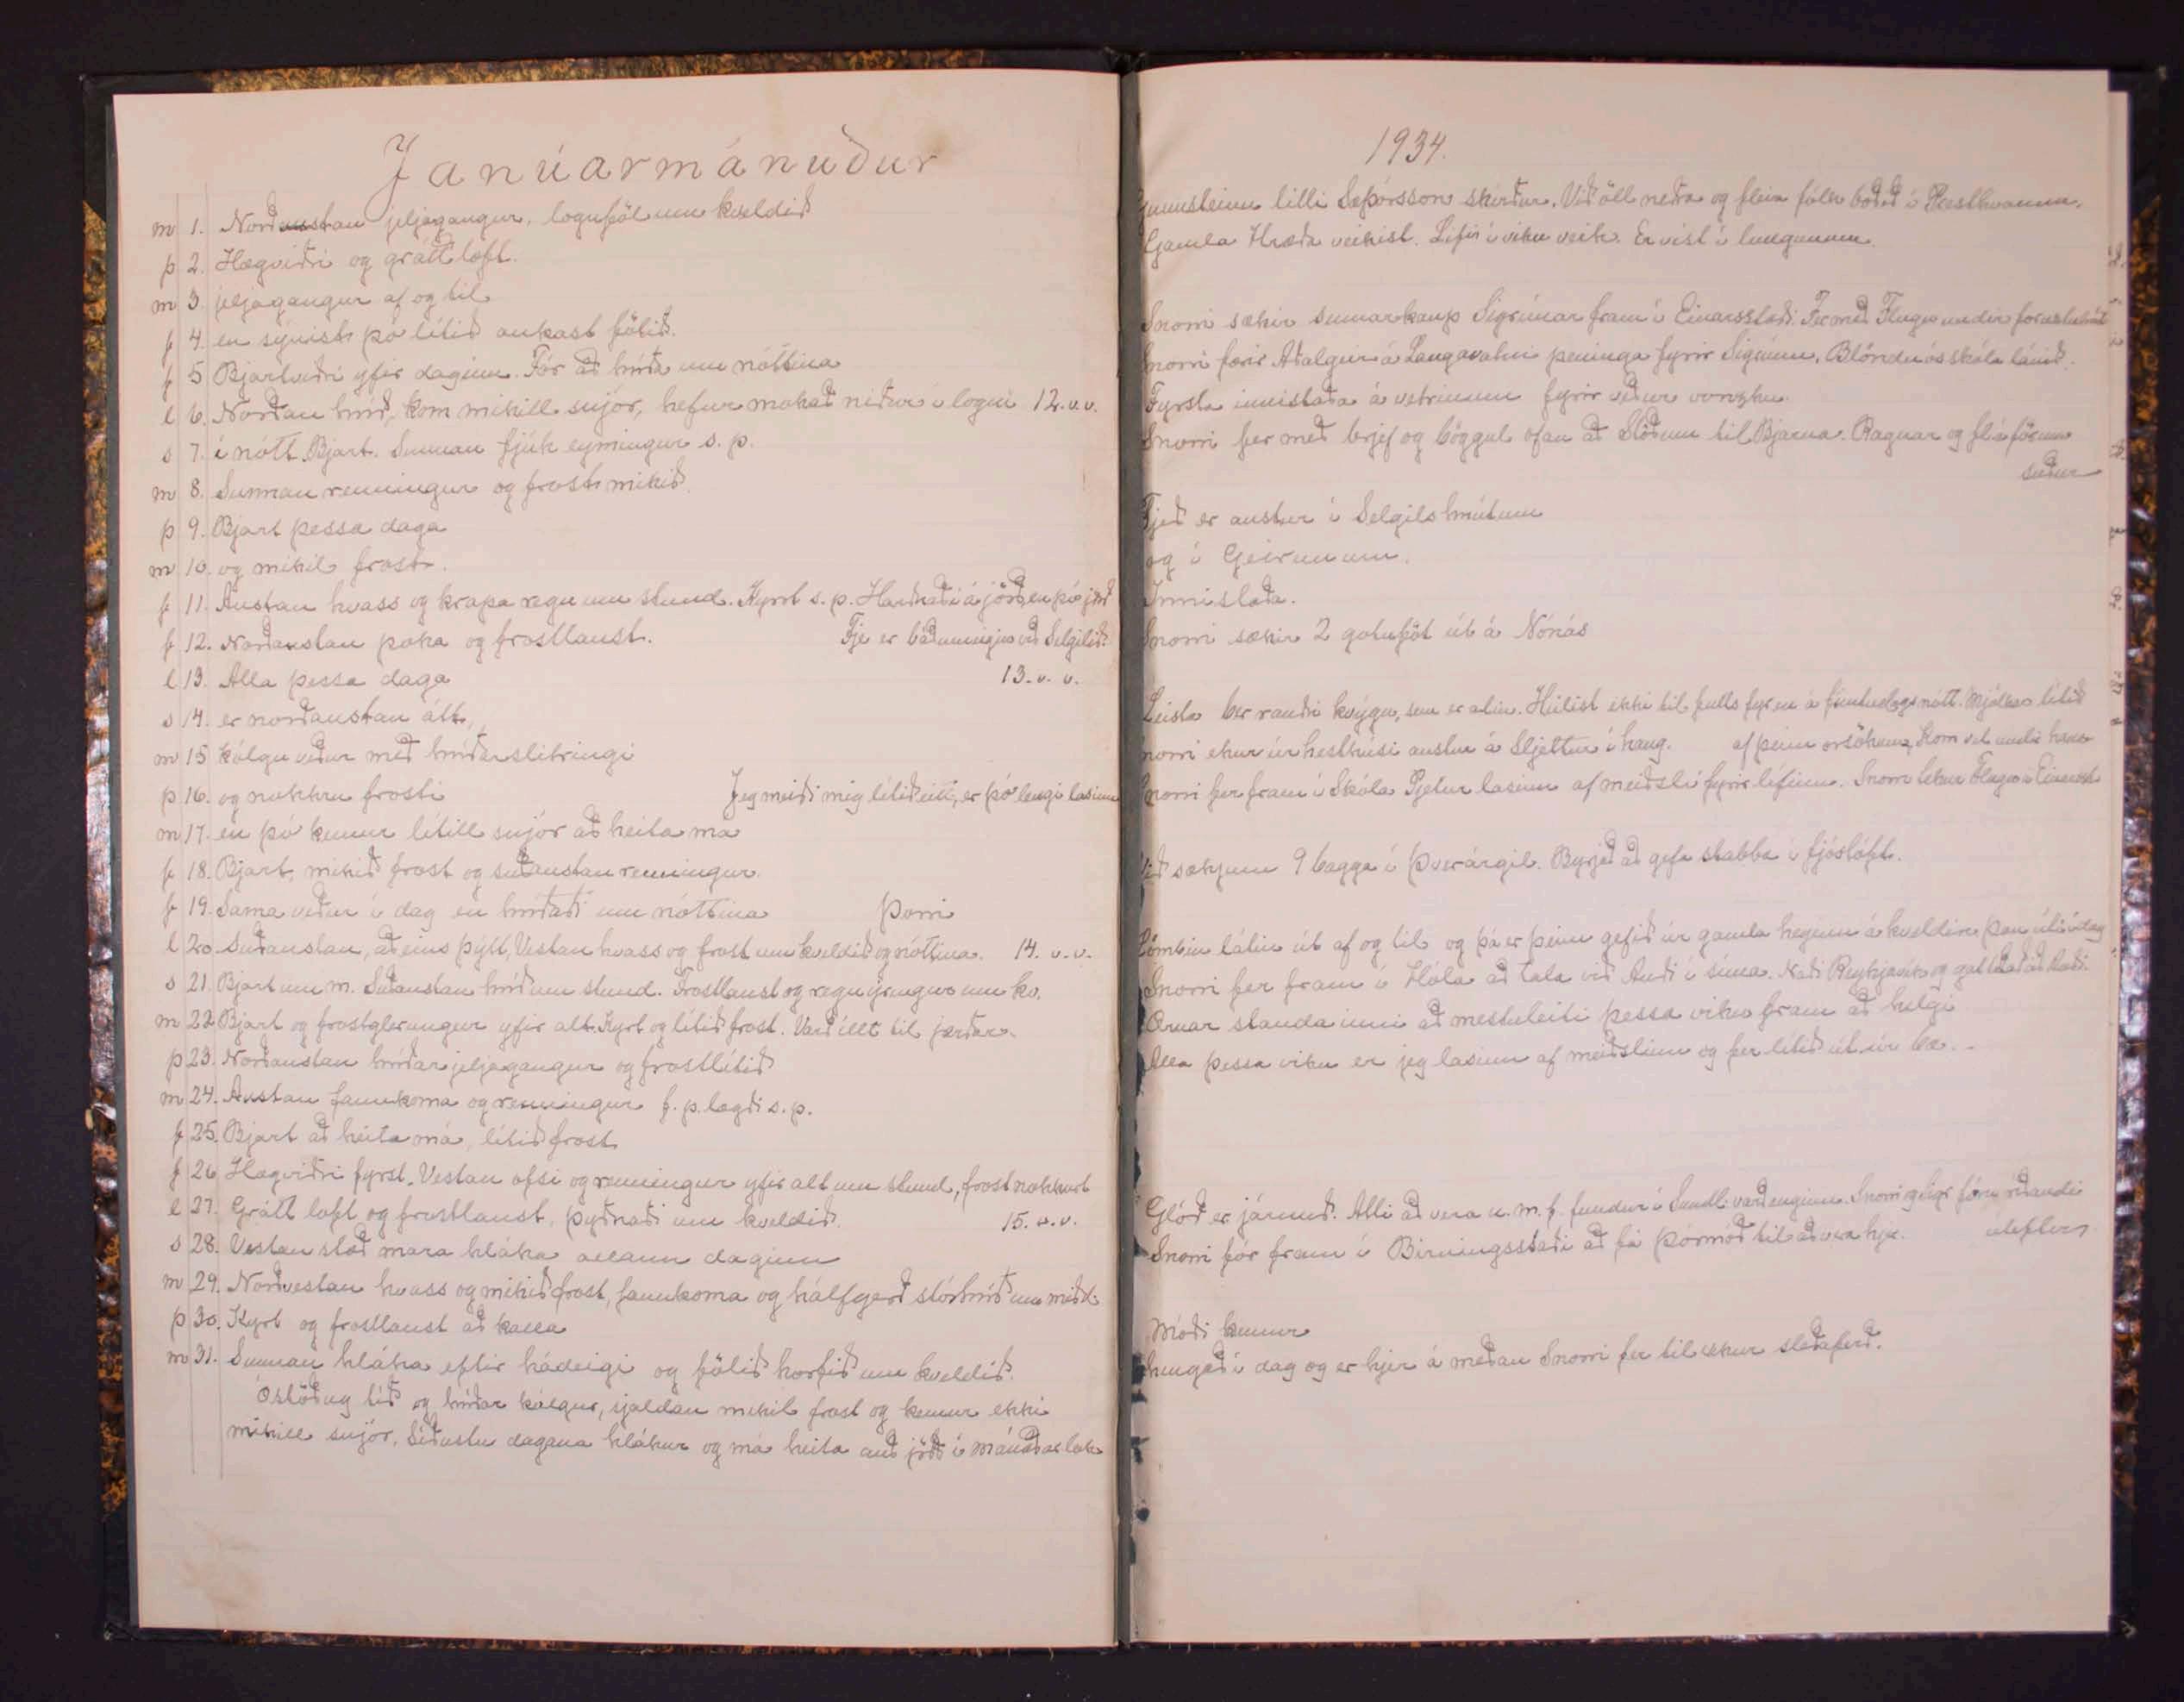 Janúarmánuður
m 1. Norðaustan jeljagangur, lognföl um kveldið
þ 2. Hægviðri og grátt loft.
m 3. jeljagangur af og til
f 4. en sýnist þó lítið aukast fölið.
f 5 Bjartviðri yfir daginn. Fór að hríða um nóttina
l 6. Norðan hríð, kom mikill snjór, hefur mokað niður í logni 12. v. v.
s 7. í nótt. Bjart. Sunnan fjúk eymingur s. p.
m 8. Sunnan renningur og frost mikið.
þ 9. Bjart þessa daga
m 10. og mikil frost.
f 11. Austan hvass og krapa regn um stund. Kyrt s. p. Harðnaði á jörð, en þó jörð
f 12. Norðaustan þoka og frostlaust. Fje er báðumegin við Selgilið.
l 13. Alla þessa daga 13. v. v.
s 14. er norðaustan átt,
m 15 kólgu veður með hríðarslitringi
þ 16. og nokkru frosti Jeg meiði mig lítið eitt, er þó lengi lasinn
m 17. en þó kemur lítill snjór að heita má
f 18. Bjart, mikið frost og suðaustan renningur.
f 19. Sama veður í dag en hríðaði um nóttina Þorri
l 20. Suðaustan, aðeins þýtt, Vestan hvass og frost um kveldið og nóttina. 14. v. v.
s 21. Bjart um m. Suðaustan hríð um stund. Frostlaust og regn ýringur um kv.
m 22 Bjart og frostglerungur yfir alt. Kyrt og lítið frost. Varð illt til jarðar.
þ 23. Norðaustan hríðar jeljagangur og frostlítið
m 24. Austan fannkoma og renningur f. p. lægði s. p.
f 25. Bjart að heita má, lítið frost
f 26 Hægviðri fyrst. Vestan ofsi og renningur yfir alt um stund, frost nokkurt
l 27. Grátt loft og frostlaust, þyðnaði um kveldið. 15. v. v.
s 28. Vestan stóð mara hláka allann daginn
m 29. Norðvestan hvass og mikið frost, fannkoma og hálfgerð stórhríð um miðd.
þ 30. Kyrt og frostlaust að kalla
m 31. Sunnan hláka eftir hádeigi og fölið horfið um kveldið.
Óstöðug tíð og hríðar kólgur, sjaldan mikil frost og kemur ekki
mikill snjór. Síðustu dagana hlákur og má heita auð jörð í mánaðar lok
1934.
Gunnsteinn litli Sæþórsson skírður. Við öll neðra og fleira fólk boðið í Presthvamm.
Gamla Hræða veikist. Lifir í viku veik. Er vist í lungunum.
Snorri sækir sumarkaup Sigrúnar fram í Einarsstaði. Fer með Flugu undir
Snorri færir Aðalgeir á Langavatni peninga fyrir Sigrúnu, Blönduósskóla lánið.
Fyrsta innistaða á vetrinum fyrir veður vonsku.
Snorri fer með brjef og böggul ofan að Slöðum til Bjarna. Ragnar og fl á förum
suður
Fjeð er austur í Selgils hnútum
og í Geirunum.
Innistaða.
Snorri sækir 2 götuföt út á Nónás
Leista ber rauðri kvýgu, sem er alin. Heilist ekki til fulls fyr en á fimtudags nótt. Mjólkar lítið
Snorri ekur úr hesthúsi austur á Sljettur í haug. af þeim orsökum, kom vel undir hana
Snorri fer fram í Skóla Pjetur lasinn af meiðsli fyrir lífinu. Snorri tekur Flugu í
Við sækjum 9 bagga í Þverárgil. Byrjað að gefa stabba í fjósloft.
Lömbin látin út af og til og þá er þeim gefið úr gamla heyinu á kveldin. Þau úti í dag
Snorri fer fram í Hóla að tala við Auði í síma. Naði Reykjavík og gat
Ærnar standa inni að mestuleiti þessa viku fram að helgi
Alla þessa viku er jeg lasinn af meiðslinu og fer lítið út úr bæ.
Glóð er járnuð. Atti að vera u. m. f. fundur í Sundl. varð enginn. Snorri og Sigr fóru ríðandi
Snorri fór fram í Birningsstaði að fá Þormóð til að vera hjer. úteftir
Móði kemur
hingað í dag og er hjer á meðan Snorri fer til ekur sleðaferð.